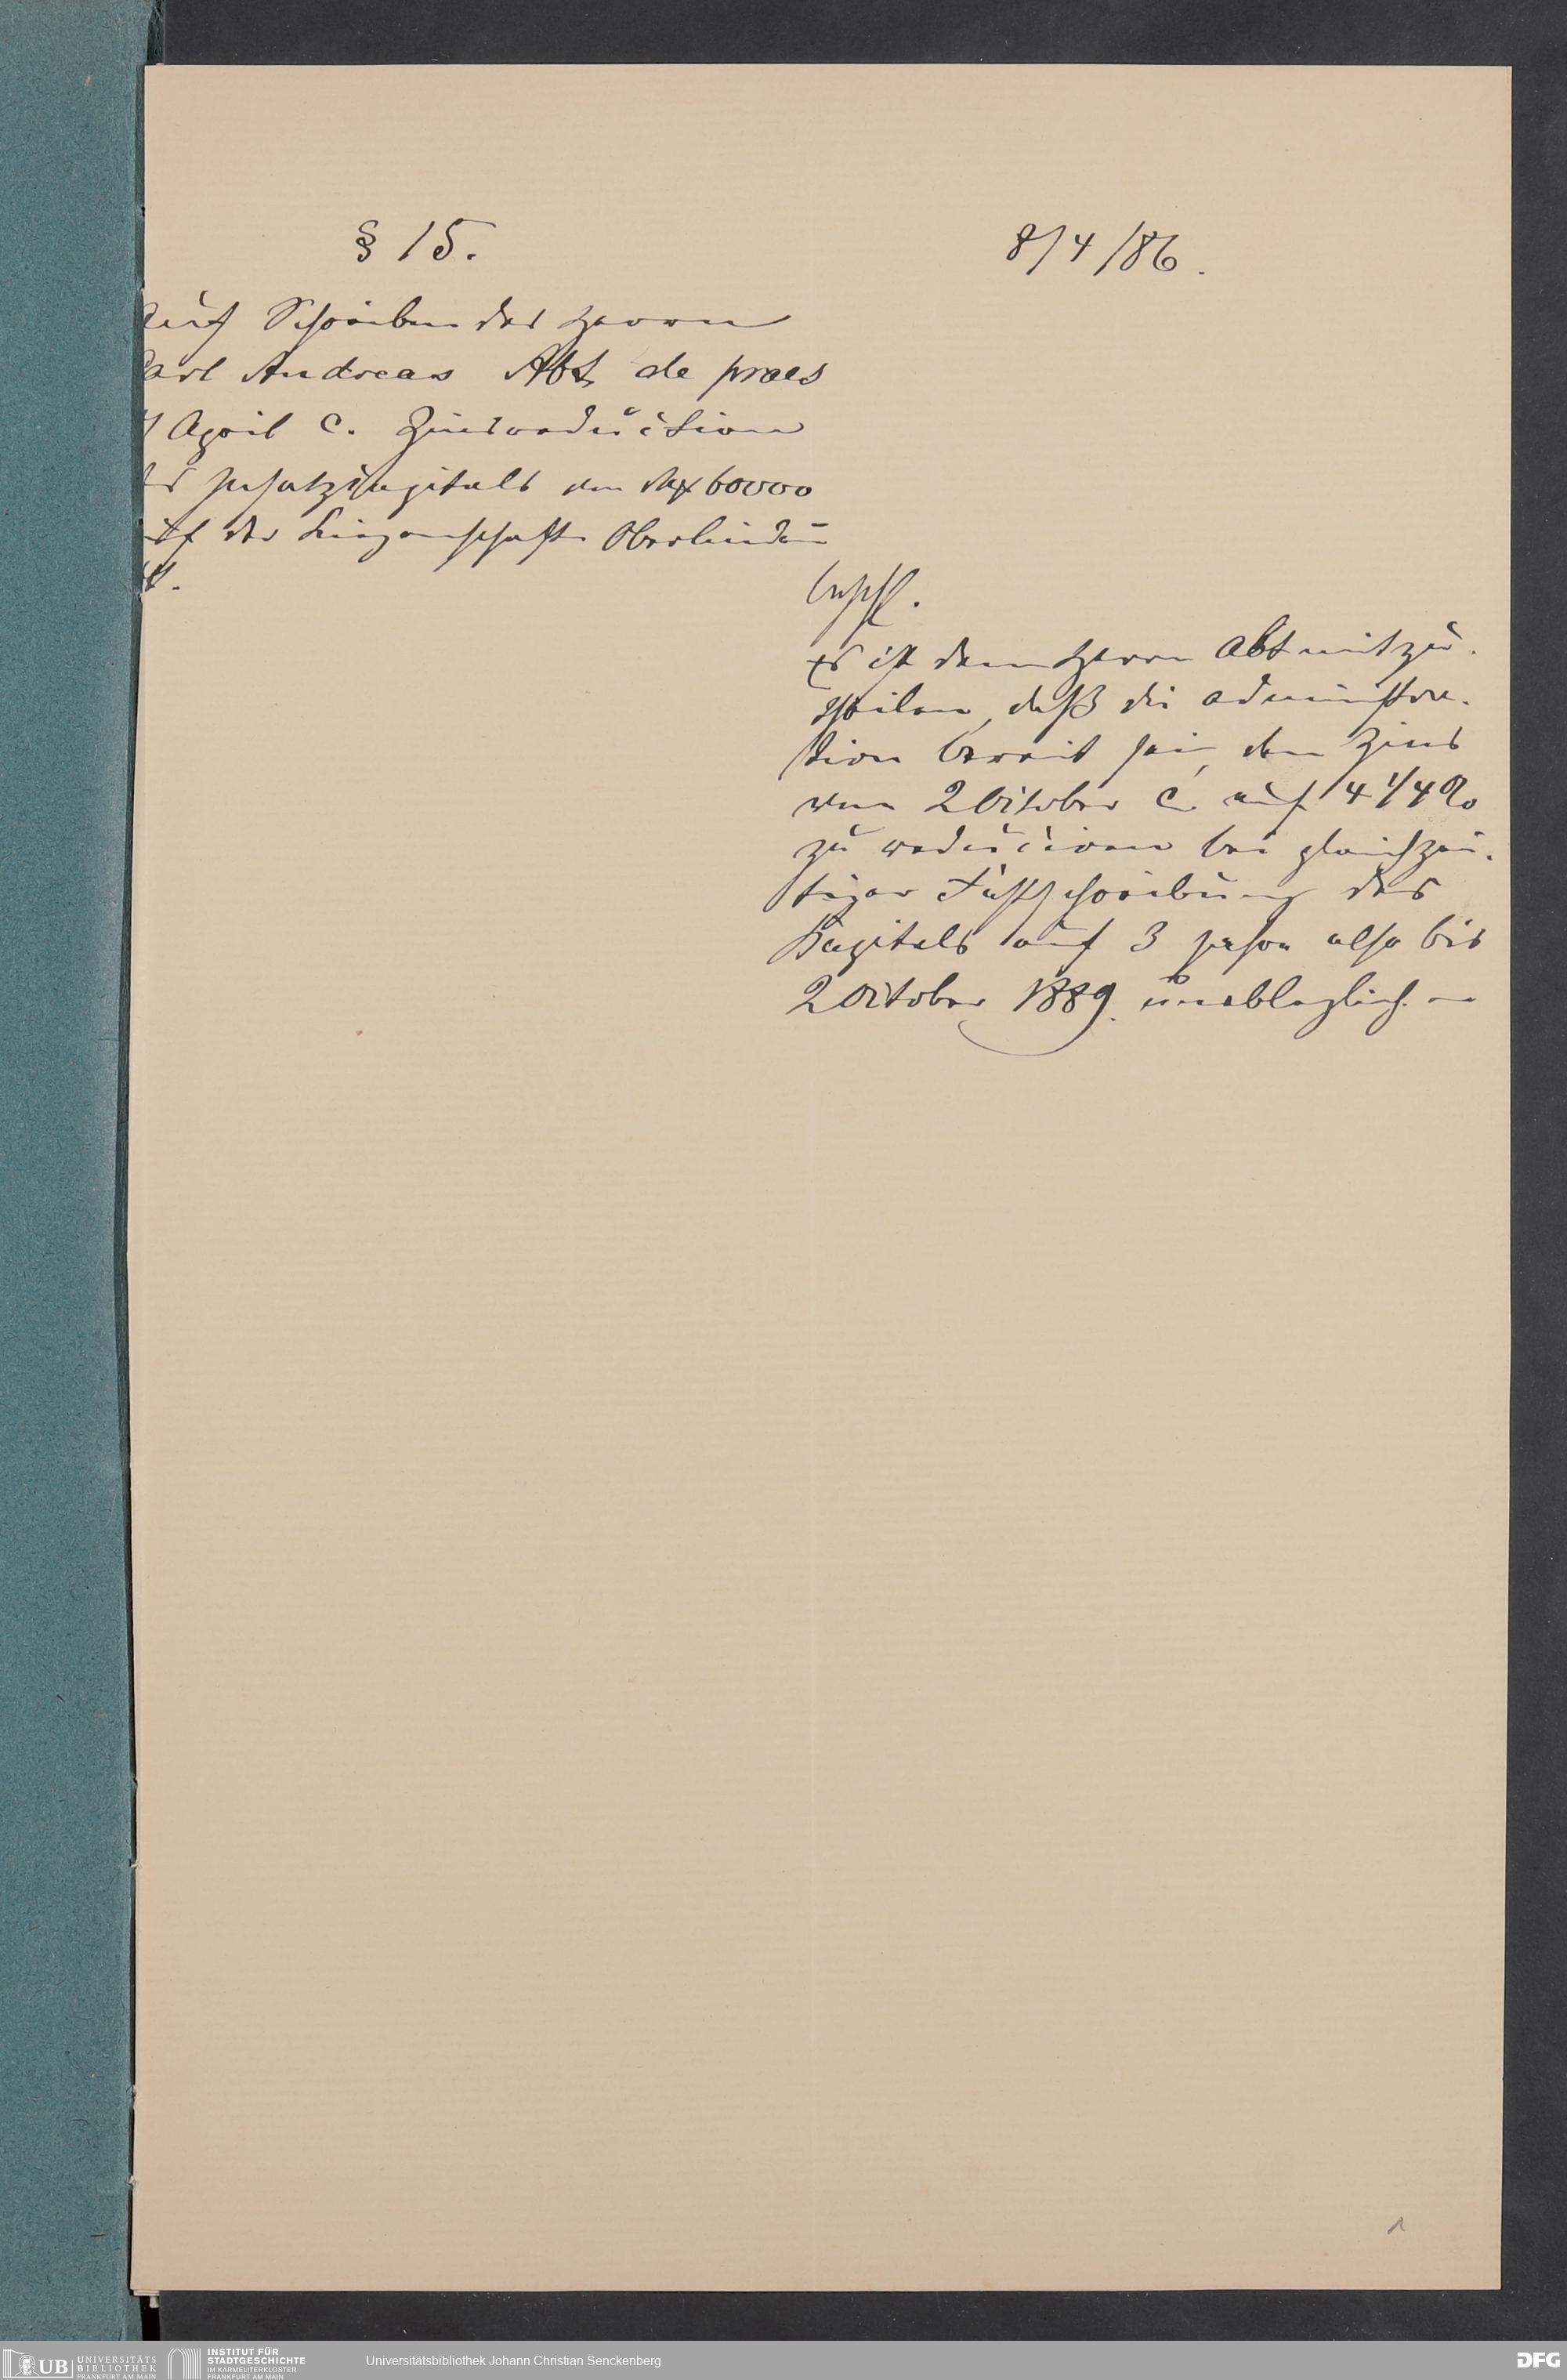 § 15.
8/4/86.
Auf Schreiben des Herrn
Carl Andreas Abt de praes
7 April c. Zinsreduction
des Insatzkapitals von Mx 60000
auf der Liegenschaft Oberlindau
Beschl.
Es ist dem Herrn Abt mitzu-
theilen, daß die Administra-
tion bereit sei, den Zins
vom 2 October c. auf 4 1/4 %
zu reduciren bei gleichzei-
tiger Festschreibung des
Kapitals auf 3 Jahre also bis
2 October 1889 unablöslich.
1
UB UNIVERSITÄTS
BIBLIOTHEK
FRANKFURT AM MAIN
INSTITUT FÜR
STADTGESCHICHTE
IM KARMELITERKLOSTER
FRANKFURT AM MAIN
Universitätsbibliothek Johann Christian Senckenberg
DFG